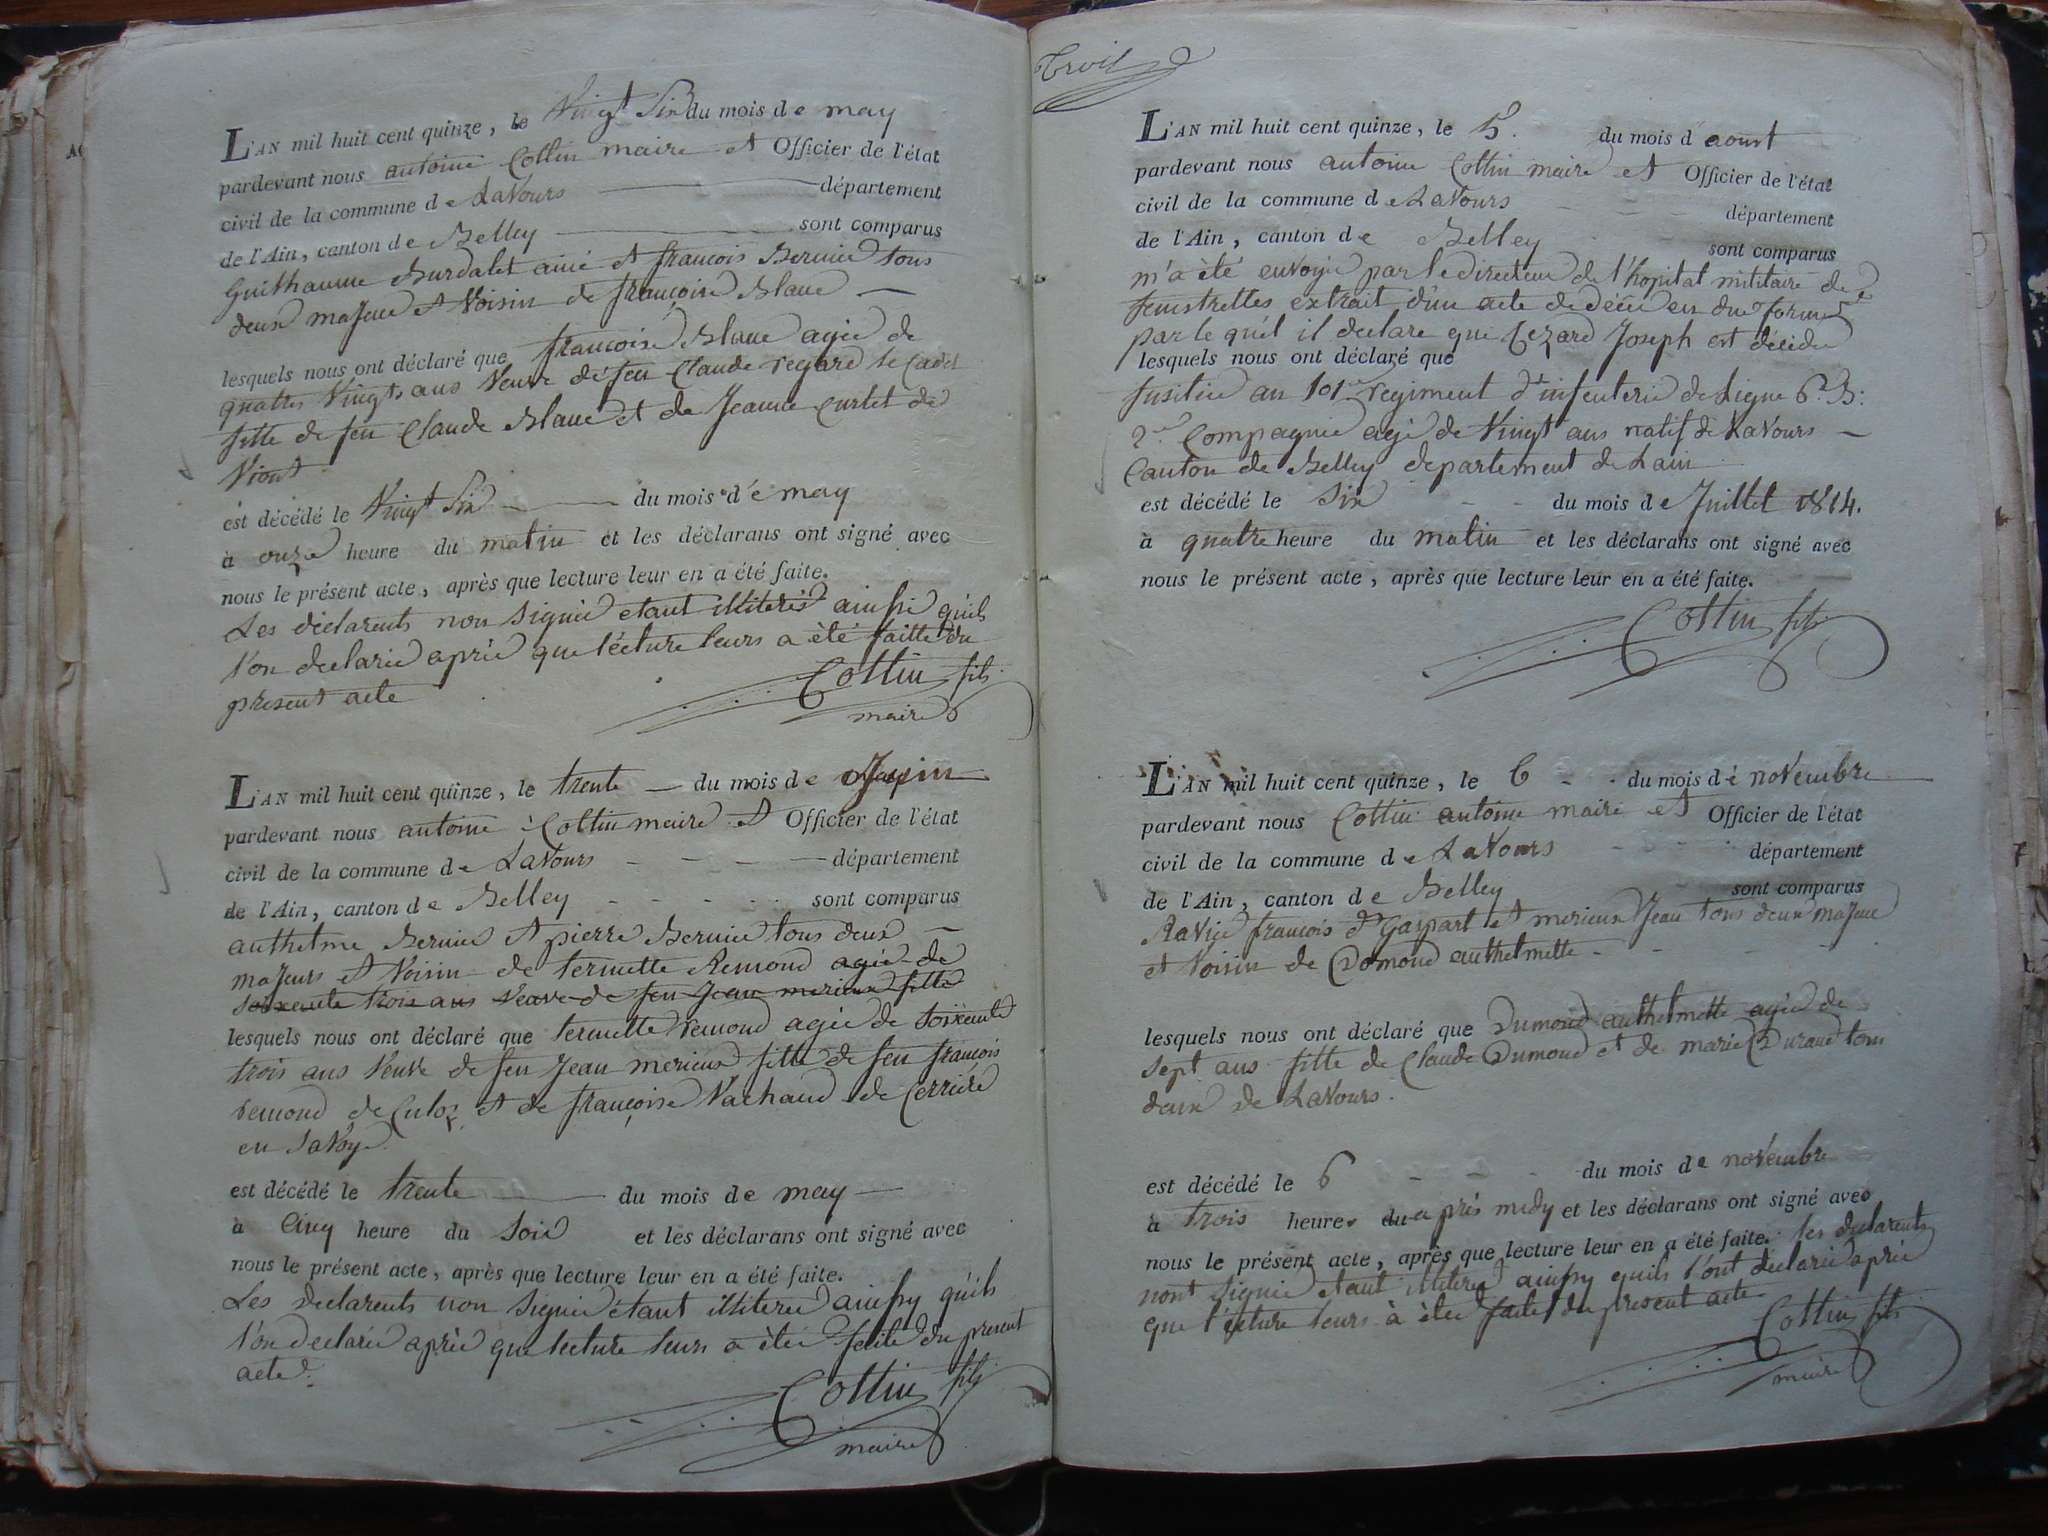 L'AN mil huit cent quinze, le Vingt Six du mois de may
pardevant nous antoine Cottin maire et Officier de l'état
civil de la commune de LaVours département
de l'Ain, canton de Belley sont comparus
Guilhaume Burdalet ainé et francois Bernier tous
deux majeur et Voisin de françoise Blanc
lesquels nous ont déclaré que francoise Blanc agée de
quatres Vingts ans Veuve de feu Claude regard le Cadet
fille de feu Claude Blanc et de Jeanne Curtet de
Viont
est décédé le Vingt Six du mois de may
à onze heure du matin et les déclarans ont signé avec
nous le présent acte, après que lecture leur en a été faite.
Les déclarents non Signée etant illiterés ainsi qu'ils
l'on declarée aprée que lécture leurs a été faitte du
present acte
Cottin fils
maire
L'AN mil huit cent quinze, le trente du mois de Juin
pardevant nous antoine Cottin maire et Officier de l'état
civil de la commune de LaVours département
de l'Ain, canton de Belley sont comparus
anthelme Bernier et pierre Bernier tous deux
majeurs et Voisin de termette Remond agée de
soixente trois ans Veuve de feu Jean merieux fille
lesquels nous ont déclaré que termette remond agée de soixente
trois ans Veuve de feu Jean merieux fille de feu françois
remond de Culoz et de françoise Vachaud de Cerriére
en Savoye
est décédé le trente du mois de may
à Cinq heure du Soir et les déclarans ont signé avec
nous le présent acte, après que lecture leur en a été faite.
Les declarents non Signée étant illiterée ainsy qu'ils
l'on declarée aprèe que lecture leurs a étée faite du present
acte
Cottin fils
maire
L'AN mil huit cent quinze, le 5. du mois d'aoust
pardevant nous antoine Cottin maire et Officier de l'état
civil de la commune de LaVours département
de l'Ain, canton de Belley sont comparus
m'a èté envoyée par le directeur de l'hopital militaire de
fenestrelles extrait d'un acte de décée en due forme
par le quel il declare que Cezard Joseph est décédée
lesquels nous ont déclaré que
fusilier au 101e regiment d'infenterie de Ligne 6e B:
2e Compagnie agé de Vingt ans natif de LaVours
Canton de Belley departement de Lain
est décédé le Six du mois de Juillet 1814.
à quatre heure du matin et les déclarans ont signé avec
nous le présent acte, après que lecture leur en a été faite.
Cottin fils
L'AN mil huit cent quinze, le 6 du mois de novembre
pardevant nous Cottin antoine maire et Officier de l'état
civil de la commune de LaVours département
de l'Ain, canton de Belley sont comparus
RaVier françois dt Gaspart et merieux Jean tous deux majeur
et Voisin de Domond anthelmette
lesquels nous ont déclaré que Dumond anthelmette agée de
sept ans fille de Claude Dumond et de marie Durand tous
deux de LaVours.
est décédé le 6 du mois de novembre
à trois heures du après midy et les déclarans ont signé avec
nous le présent acte, après que lecture leur en a été faite. les declarents
nont Signée etant illiterée ainsy quils l'ont declarée aprée
que l'ecture leurs à étée faite du present acte
Cottin fils
maire